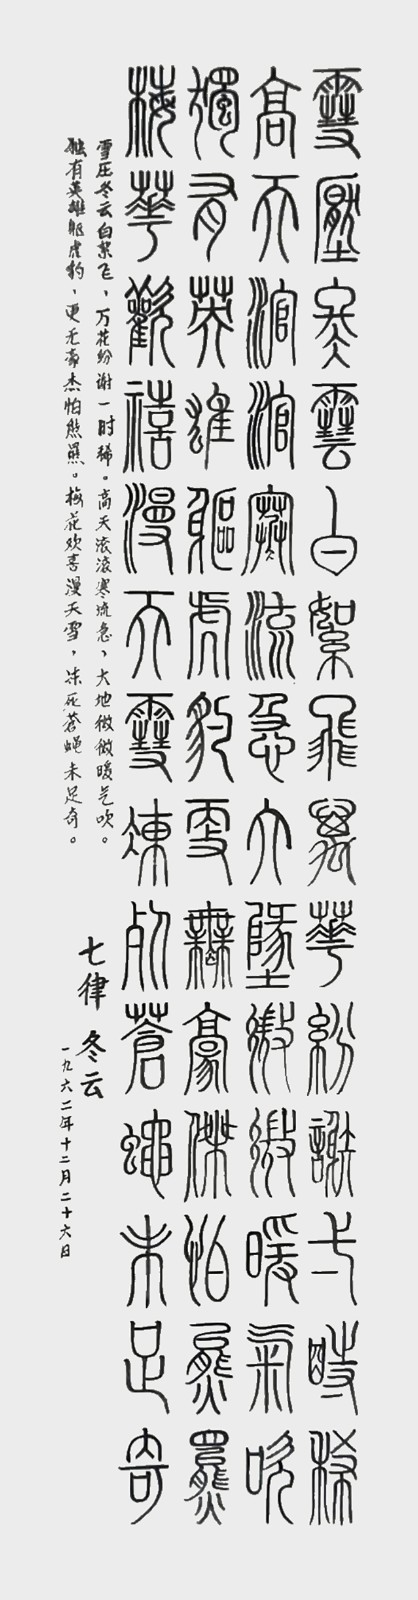 雪壓冬雲白絮飛萬華紛謝弌時稀
高天滾滾寒流急大墬微微暖氣吹
獨有英雄驅虎豹更無豪傑怕熊羆
梅華歡喜漫天雪凍死蒼蠅未足奇
雪压冬云白絮飞，万花纷谢一时稀。高天滚滚寒流急，大地微微暖气吹。
独有英雄驱虎豹，更无豪杰怕熊羆。梅花欢喜漫天雪，冻死苍蝇未足奇。
七律 冬云
一九六二年十二月二十六日